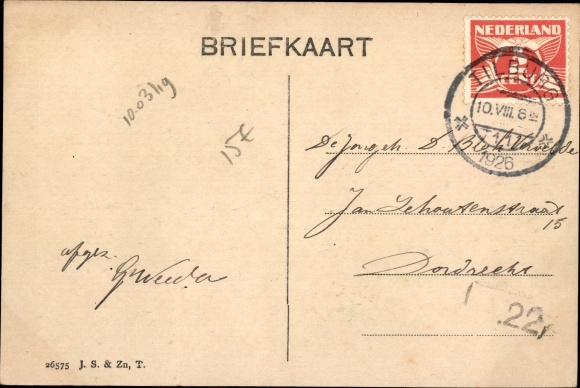 BRIEFKAART
NEDERLAND
TILBURG
10.VIII.6
1926
10.03/19
15€
De Jongeh. D. Blok
Jan Schoutenstraat
15
Dordrecht
afgez.
.22
26575 J. S. & Zn, T.